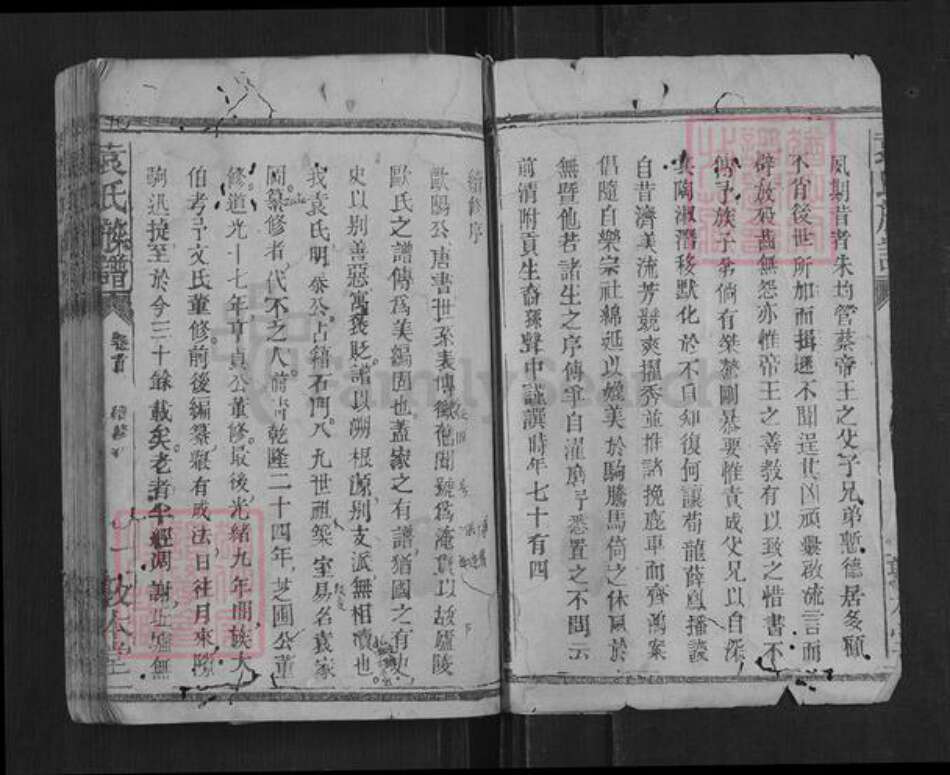 夙期昔者朱均管蔡帝王之父子兄弟慙德居多顧
不肖後世所加而揖遜不聞逞其凶頑釁啟流言而
辟放殺齒無怨亦惟帝王之善教有以致之惜書不
傳予族子弟倘有桀驁剛暴要惟責成父兄以自深
其陶淑潛移默化於不自知復何讓荀龍薛鳳播談
自昔濟美流芳競爽擢秀並推諸挽鹿車而齊鴻案
倡隨自樂宗社綿延以媲美於駒騰馬倚之休風於
無暨他若諸生之序傳宰自濯磨予悉置之不問云
前清附貢生裔孫聲中謹譔時年七十有四
續修序
歐陽公唐書世系表傳徵 聞 為淹貫以故廬陵
歐氏之譜傳為美編固也蓋家之有譜猶國之有史
史以別善惡寓褒貶譜以溯根源別支派無相瀆也
我袁氏明 泰公占籍石門八九世祖築室易名袁家
園纂修者代不乏人前清乾隆二十四年芝圃公董
修道光十七年 貞公董修最後光緒九年闔族大
伯考予文氏董修前後編纂 有成法日往月來隙
駒迅捷至於今三十餘載矣老者半經凋謝 無
袁氏族譜
卷首
續修序
一